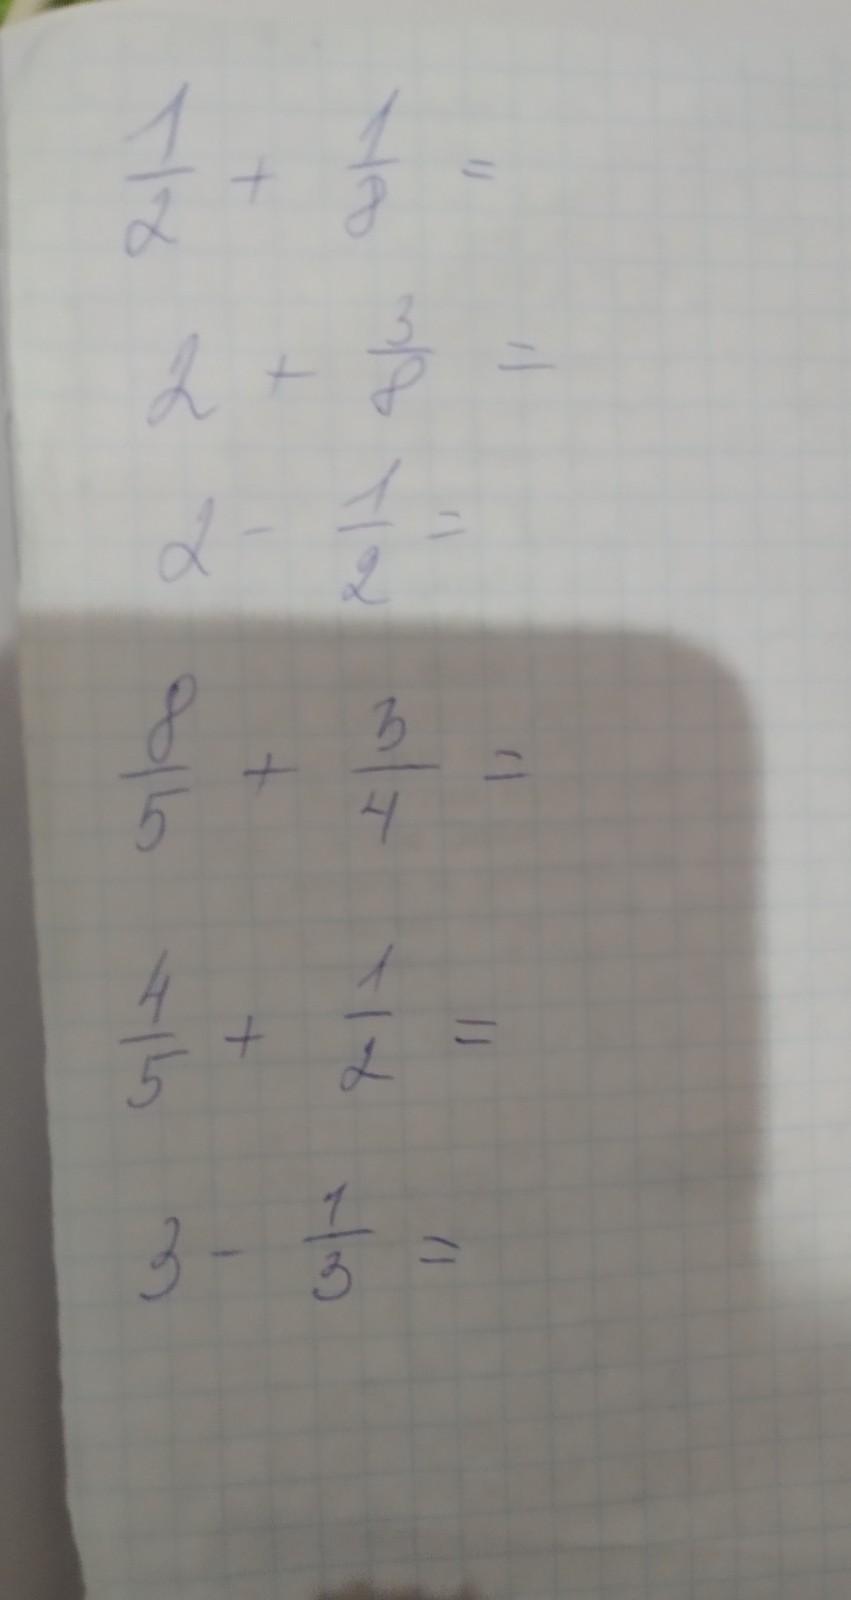 1/2 + 1/8 =
2 + 3/8 =
2 - 1/2 =
8/5 + 3/4 =
4/5 + 1/2 =
3 - 1/3 =